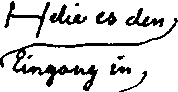 Helie es den,
Eingang in,